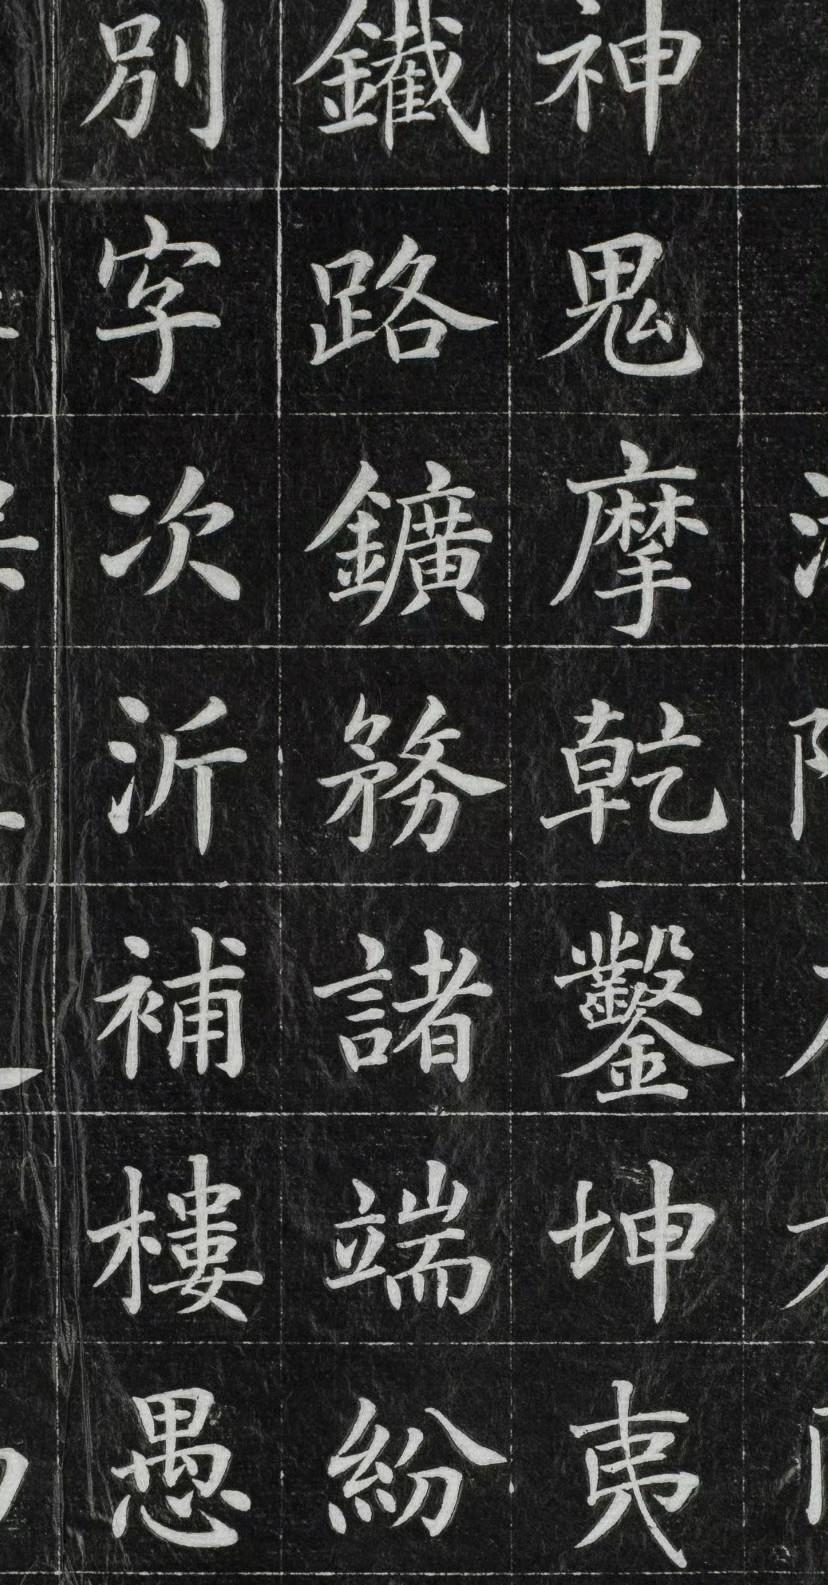 神鬼摩乾鑿坤夷
鐵路鑛務諸端紛
別字次沂補樓愚